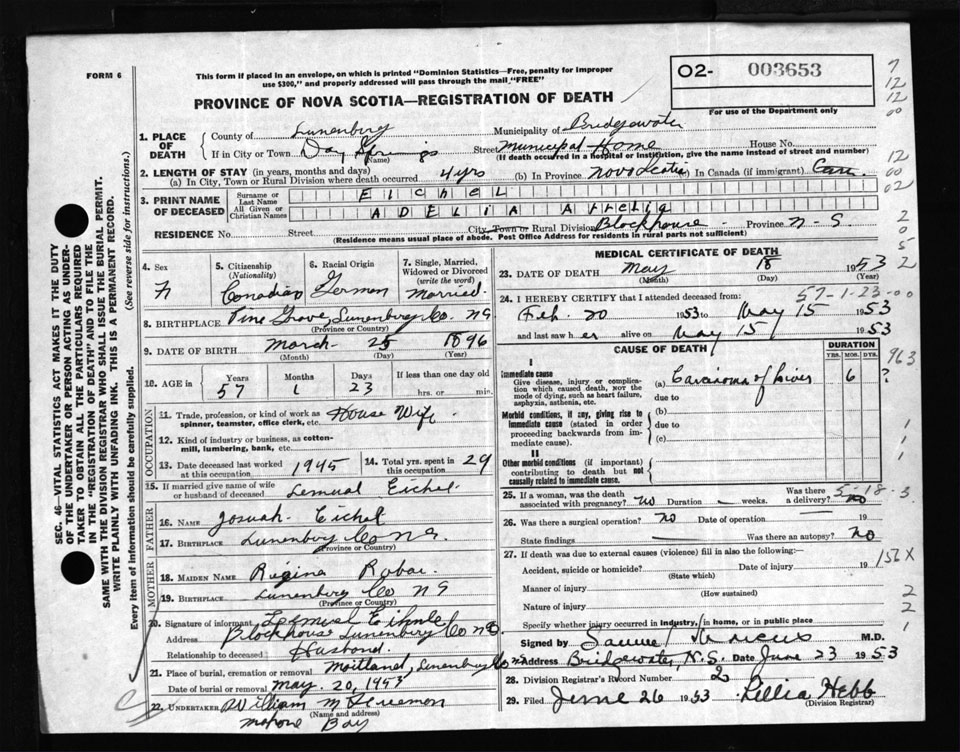 FORM 6
This form if placed in an envelope, on which is printed "Dominion Statistics—Free, penalty for improper
use $300," and properly addressed will pass through the mail "FREE"
PROVINCE OF NOVA SCOTIA—REGISTRATION OF DEATH
O2- 003653
For use of the Department only
1. PLACE OF DEATH
County of Lunenburg Municipality of Bridgewater
If in City or Town Day Springs (Name) Street Municipal Home House No.
(If death occurred in a hospital or institution, give the name instead of street and number)
2. LENGTH OF STAY (in years, months and days)
(a) In City, Town or Rural Division where death occurred 4 yrs (b) In Province Nova Scotia In Canada (if immigrant) Can.
3. PRINT NAME OF DECEASED
Surname or Last Name EICHEL
All Given or Christian Names ADELIA
RESIDENCE No. Street City, Town or Rural Division Blockhouse Province N-S
(Residence means usual place of abode. Post Office Address for residents in rural parts not sufficient)
4. Sex
5. Citizenship (Nationality) Canadian
6. Racial Origin German
7. Single, Married, Widowed or Divorced (write the word) Married
8. BIRTHPLACE Pine Grove, Lunenburg Co. NS
(Province or Country)
9. DATE OF BIRTH March 25 1896
(Month) (Day) (Year)
10. AGE in Years 57 Months 1 Days 23 If less than one day old hrs. or min.
OCCUPATION
11. Trade, profession, or kind of work as spinner, teamster, office clerk, etc. House Wife
12. Kind of industry or business, as cotton-mill, lumbering, bank, etc.
13. Date deceased last worked at this occupation 1945
14. Total yrs. spent in this occupation 29
15. If married give name of wife or husband of deceased Lemual Eichel
FATHER
16. Name Josuah Eichel
17. Birthplace Lunenburg Co N.S.
(Province or Country)
MOTHER
18. MAIDEN NAME Regina
19. BIRTHPLACE Lunenburg Co NS
(Province or Country)
20. Signature of informant Lemual
Address Blockhouse Lunenburg Co NS
Relationship to deceased Husband
21. Place of burial, cremation or removal Maitland, Lunenburg Co NS
Date of burial or removal May. 20, 1953
22. UNDERTAKER William M
(Name and address)
Mahone Bay
MEDICAL CERTIFICATE OF DEATH
23. DATE OF DEATH May 18 1953
(Month) (Day)
57-1-23-00
24. I HEREBY CERTIFY that I attended deceased from:
Feb. 20 1953 to May 15 1953
and last saw her alive on May 15 1953
CAUSE OF DEATH
DURATION
YRS. MOS. DYS.
I
Immediate cause
Give disease, injury or complication which caused death, not the mode of dying, such as heart failure, asphyxia, asthenia, etc.
(a) Carcinoma of liver 6 ?
due to
Morbid conditions, if any, giving rise to immediate cause (stated in order proceeding backwards from immediate cause).
(b)
due to
(c)
II
Other morbid conditions (if important) contributing to death but not causally related to immediate cause.
25. If a woman, was the death associated with pregnancy? no Duration weeks. Was there a delivery? no
5-18-3
26. Was there a surgical operation? no Date of operation 19
State findings Was there an autopsy? no
27. If death was due to external causes (violence) fill in also the following:—
Accident, suicide or homicide? Date of injury 19
(State which)
156 X
Manner of injury
(How sustained)
Nature of injury
Specify whether injury occurred in industry, in home, or in public place
Signed by Samuel Marcus M.D.
Address Bridgewater, N.S. Date June 23 1953
28. Division Registrar's Record Number 2
29. Filed June 26 1953 Lillia Hebb
(Division Registrar)
963
SEC. 46—VITAL STATISTICS ACT MAKES IT THE DUTY
OF THE UNDERTAKER OR PERSON ACTING AS UNDER-
TAKER TO OBTAIN ALL THE PARTICULARS REQUIRED
IN THE "REGISTRATION OF DEATH" AND TO FILE THE
SAME WITH THE DIVISION REGISTRAR WHO SHALL ISSUE THE BURIAL PERMIT.
WRITE PLAINLY WITH UNFADING INK. THIS IS A PERMANENT RECORD.
Every item of information should be carefully supplied. (See reverse side for instructions.)